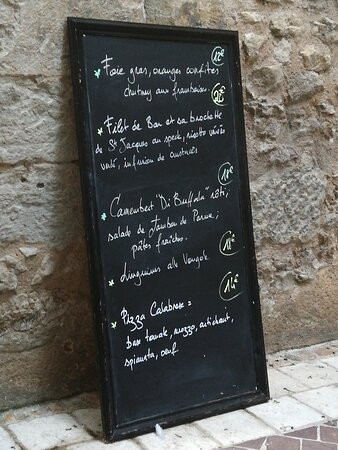 12€
* Foie gras, oranges confites
chutney aux framboises.
* Filet de Bar et sa brochette
de St Jacques au speck, risotto
vert, infusion de
* Camembert "Di Buffala" rôti;
salade de Jambon de Parme;
pâtes fraîches.
* Linguines alle Vongole.
14€
* Pizza Calabrese =
base tomate, mozza, artichaut,
spianata, oeuf.